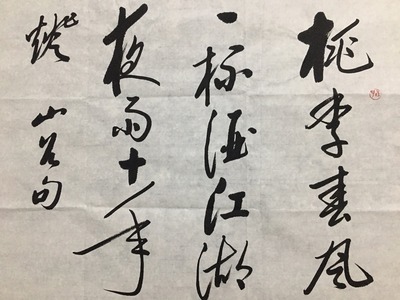 桃李春风
一杯酒江湖
夜雨十年
灯
山谷句